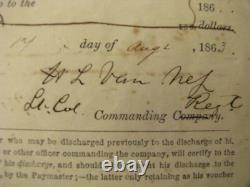 to the 186
186 dollars
14 day of Augt 1863
H L Van Ness
Lt. Col. Commanding Company. Regt
er who may be discharged previously to the discharge of hi
or other officer commanding the company, will certify to the
f his discharge, and should at his discharge to the
by the Paymaster;—the latter only retaining as his voucher